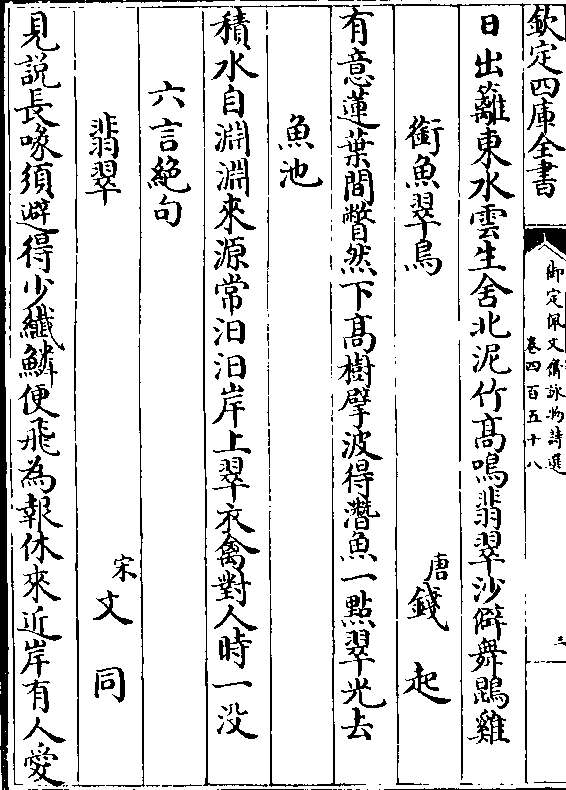 欽定四庫全書
御定佩文齋詠物詩選
卷四百五十八
三
日出籬東水雲生舍北泥竹高鳴翡翠沙僻舞鵾雞
銜魚翠鳥
唐
錢起
有意蓮葉間瞥然下高樹擘波得潛魚一點翠光去
魚池
積水自淵淵來源常汩汩岸上翠衣禽對人時一没
六言絶句
翡翠
宋
文同
見説長喙須避得少纖鱗便飛為報休來近岸有人愛